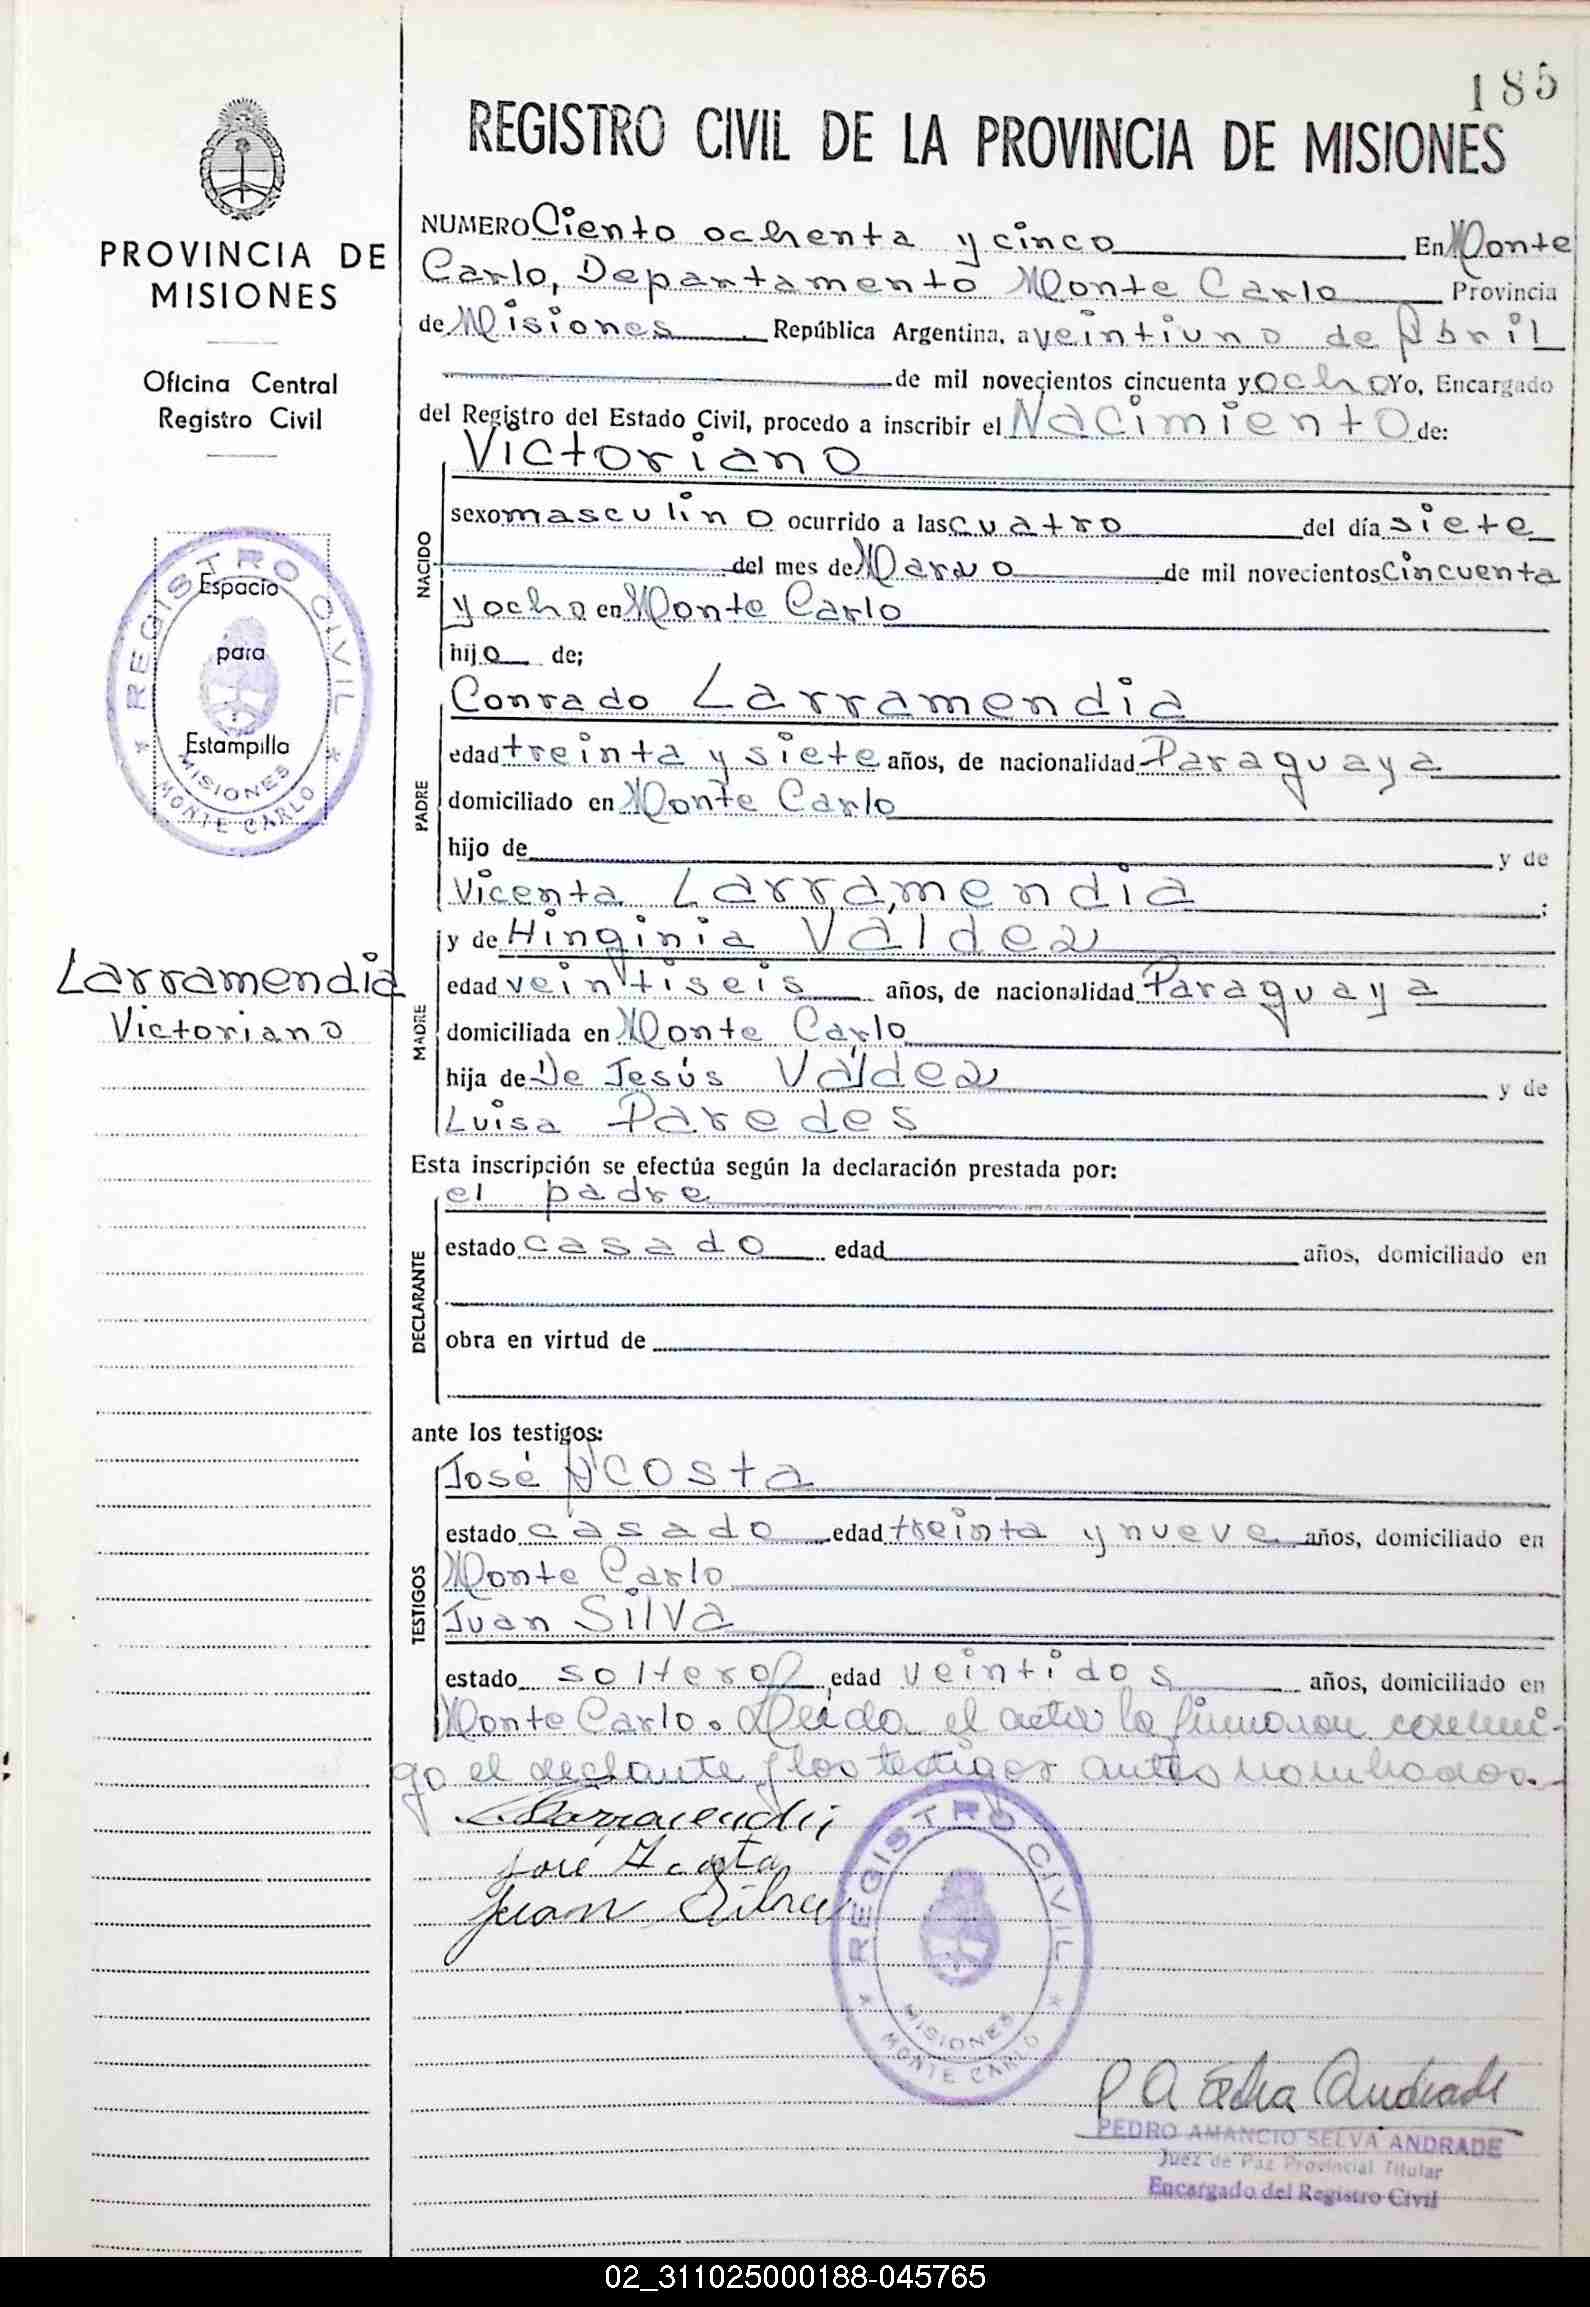 185
REGISTRO CIVIL DE LA PROVINCIA DE MISIONES
PROVINCIA DE
MISIONES
Oficina Central
Registro Civil
REGISTRO CIVIL
Espacio
para
Estampilla
MISIONES
MONTE CARLO
Larramendia
Victoriano
NUMERO Ciento ochenta y cinco En Monte
Carlo, Departamento Monte Carlo Provincia
de Misiones República Argentina, a veintiuno de Abril
de mil novecientos cincuenta y ocho Yo, Encargado
del Registro del Estado Civil, procedo a inscribir el Nacimiento de:
NACIDO
Victoriano
sexo masculino ocurrido a las cuatro del día siete
del mes de Marzo de mil novecientos Cincuenta
y ocho en Monte Carlo
hijo de;
PADRE
Conrado Larramendia
edad treinta y siete años, de nacionalidad Paraguaya
domiciliado en Monte Carlo
hijo de y de
Vicenta Larramendia ;
MADRE
y de Hinginia Váldez
edad veintiseis años, de nacionalidad Paraguaya
domiciliada en Monte Carlo
hija de De Jesús Váldez y de
Luisa Paredes
Esta inscripción se efectúa según la declaración prestada por:
DECLARANTE
el padre
estado casado edad años, domiciliado en
obra en virtud de
ante los testigos:
TESTIGOS
José Acosta
estado casado edad treinta y nueve años, domiciliado en
Monte Carlo
Juan Silva
estado soltero edad veintidos años, domiciliado en
Monte Carlo. Leida el acta la firmaron conmi-
go el declante y los testigos antes nombrados.
Larramendi
José Acosta
Juan Silva
REGISTRO CIVIL
MISIONES
MONTE CARLO
P A Selva Andrade
PEDRO AMANCIO SELVA ANDRADE
Juez de Paz Provincial Titular
Encargado del Registro Civil
02_311025000188-045765